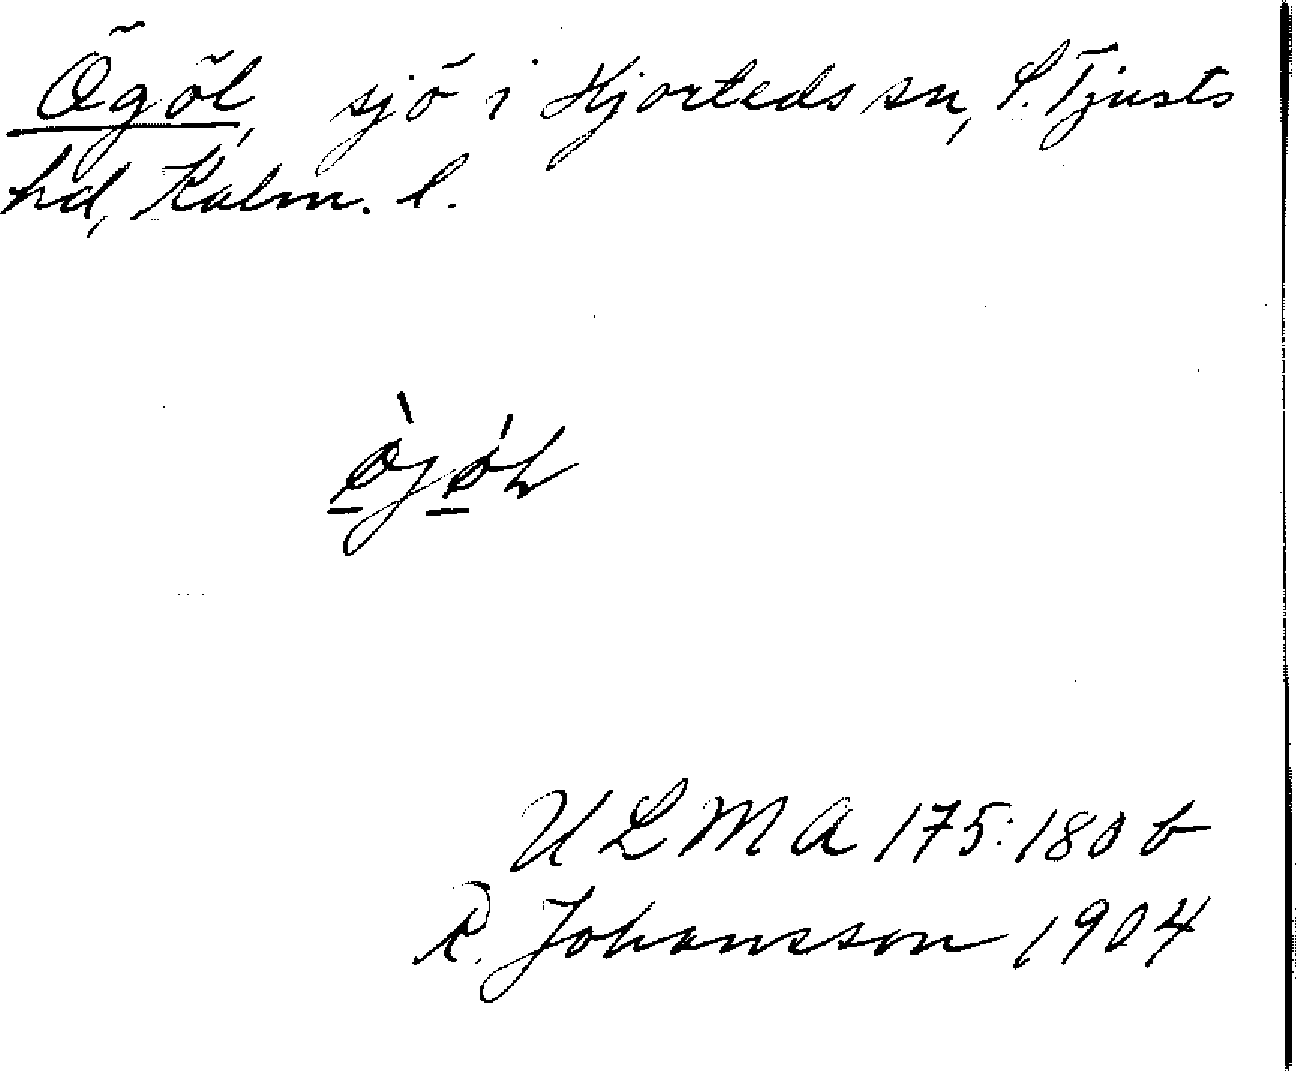 Ögöl, sjö i Hjorteds sn, S. Tjusts
hd, Kalm. l.
ULMA 175:180 b
R. Johansson 1904